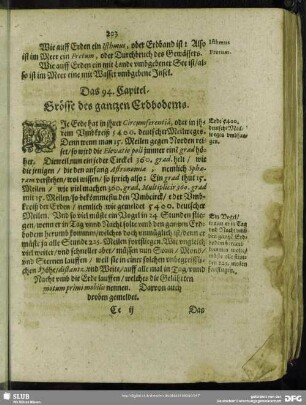 203
Wie auff Erden ein Isthmus, oder Erdband ist: Also
ist im Meer ein Fretum, oder Durchbruch des Gewässers.
Wie auff Erden ein mit Lande umbgebener See ist/ al-
so ist im Meer eine mit Wasser umbgebene Insel.
Isthmus
Fretum.
Das 94. Kapitel.
Grösse des gantzen Erdbodems.
Die Erde hat in ihrer Circumferentiâ, oder in ih-
rem Umbkreiß 5400. deutscher Meilweges.
Denn wenn man 15. Meilen gegen Norden rei-
set/ so wird die Elevatio poli immer einl grad höher.
Dieweil nun ein jeder Circkel 360. grad. helt/ wie
die jenigen/ die den anfang Astronomiæ; nemlich Sphæ-
ram verstehen/ wol wissen/ so sprich also: Ein grad thut 15.
Meilen/ wie viel machen 360. grad, Multiplicir 360. grad
mit 15. Meilen/ so bekömmestu den Umbcirck/ oder Umb-
kreiß der Erden/ nemlich wie gemeldet 5400. deutscher
Meilen. Und so viel müste ein Vogel in 24. Stunden flie-
gen, wenn er in Tag und Nacht solte umb den gantzen Erd-
bodem herumb kommen/ welches doch unmüglich ist/ denn er
müste ja alle Stunde 225. Meilen fortfliegen. Wie müglich
viel weiter/ und schneller aber/ müssen nun Sonn/ Mond/
und Sternen lauffen/ weil sie in einer solchen unbegreiffli-
chen Höhe/ distantz, und Weite/ auff alle mal in Tag/ und
Nacht umb die Erde lauffen/ welches die Gelährten
motum primi mobilis nennen. Darvon auch
droben gemeldet.
Erde 5400.
deutscher Mei-
Ein Vogel/
Cc ij
Das
SLUB
DFG